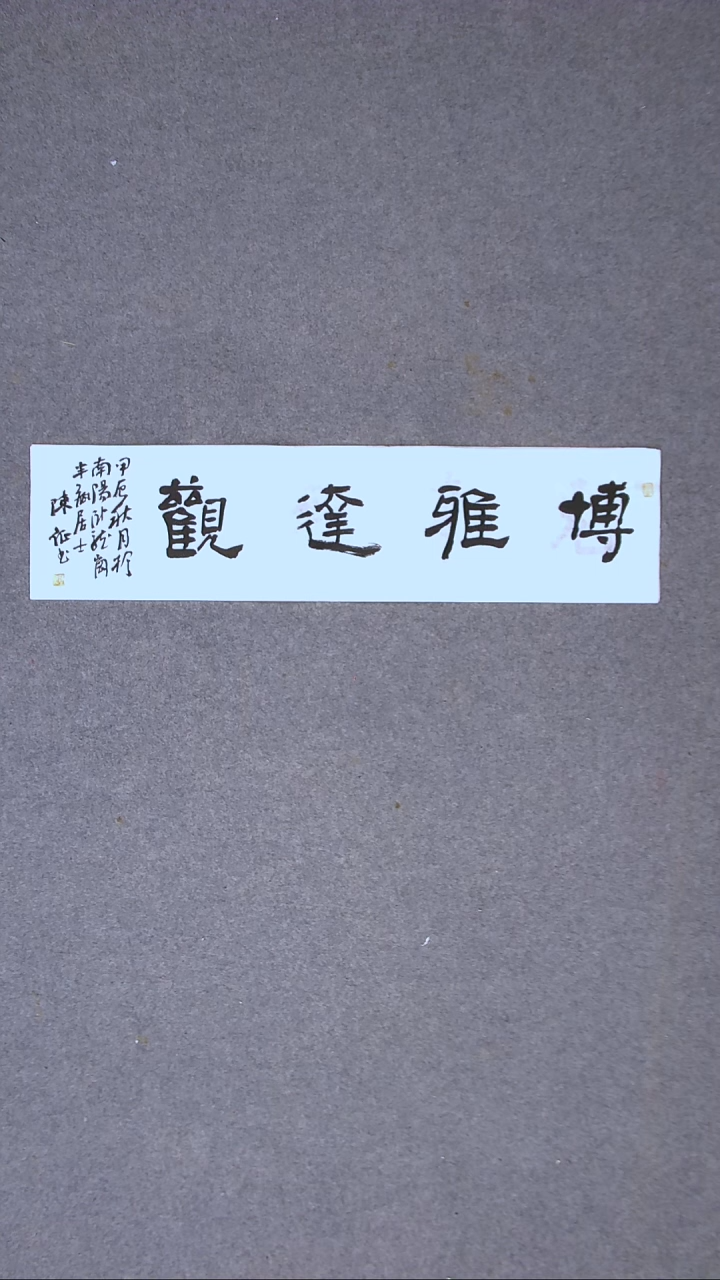 博雅達觀
甲辰秋月於
南陽卧龍崗
半秋居士
陳 征书